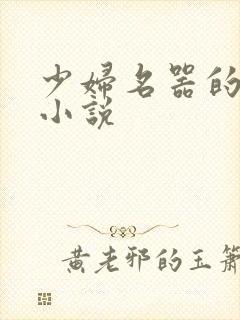 少婦名器的
小說
黃老邪的玉簫